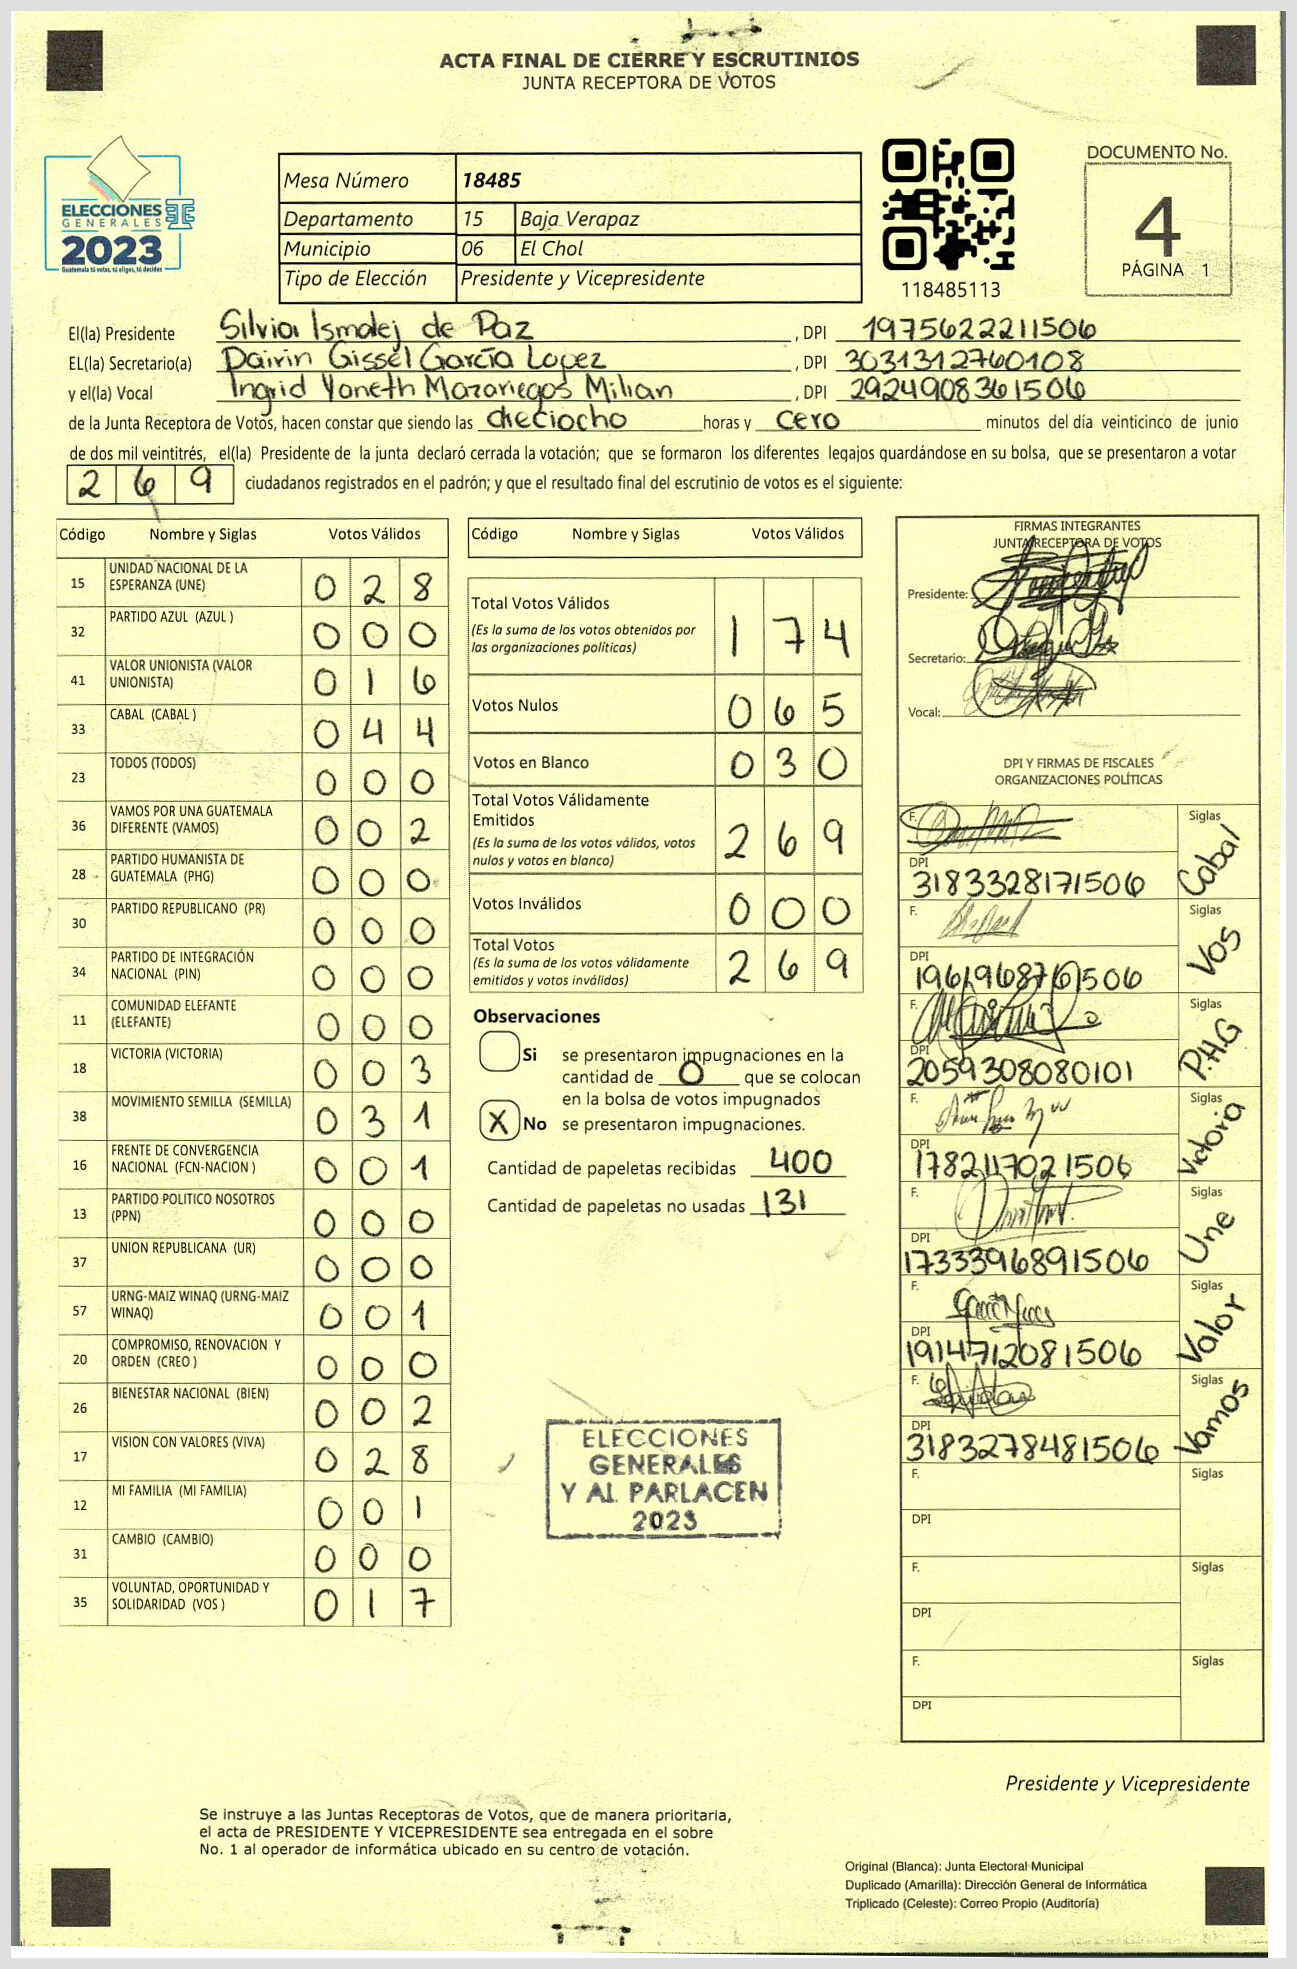 ACTA FINAL DE CIERRE Y ESCRUTINIOS
JUNTA RECEPTORA DE VOTOS
ELECCIONES
GENERALES
2023
Guatemala tú votas, tú eliges, tú decides
Mesa Número 18485
Departamento 15 Baja Verapaz
Municipio 06 El Chol
Tipo de Elección Presidente y Vicepresidente
118485113
DOCUMENTO No.
4
PÁGINA 1
El(la) Presidente Silvia Ismalej de Paz , DPI 1975622211506
EL(la) Secretario(a) Dairin Gissel García Lopez , DPI 3031312760108
y el(la) Vocal Ingrid Yaneth Mazariegos Milian , DPI 2924908361506
de la Junta Receptora de Votos, hacen constar que siendo las dieciocho horas y cero minutos del día veinticinco de junio
de dos mil veintitrés, el(la) Presidente de la junta declaró cerrada la votación; que se formaron los diferentes legajos guardándose en su bolsa, que se presentaron a votar
269 ciudadanos registrados en el padrón; y que el resultado final del escrutinio de votos es el siguiente:
Código Nombre y Siglas Votos Válidos
15 UNIDAD NACIONAL DE LA ESPERANZA (UNE) 0 2 8
32 PARTIDO AZUL (AZUL ) 0 0 0
41 VALOR UNIONISTA (VALOR UNIONISTA) 0 1 6
33 CABAL (CABAL ) 0 4 4
23 TODOS (TODOS) 0 0 0
36 VAMOS POR UNA GUATEMALA DIFERENTE (VAMOS) 0 0 2
28 PARTIDO HUMANISTA DE GUATEMALA (PHG) 0 0 0
30 PARTIDO REPUBLICANO (PR) 0 0 0
34 PARTIDO DE INTEGRACIÓN NACIONAL (PIN) 0 0 0
11 COMUNIDAD ELEFANTE (ELEFANTE) 0 0 0
18 VICTORIA (VICTORIA) 0 0 3
38 MOVIMIENTO SEMILLA (SEMILLA) 0 3 1
16 FRENTE DE CONVERGENCIA NACIONAL (FCN-NACION ) 0 0 1
13 PARTIDO POLITICO NOSOTROS (PPN) 0 0 0
37 UNION REPUBLICANA (UR) 0 0 0
57 URNG-MAIZ WINAQ (URNG-MAIZ WINAQ) 0 0 1
20 COMPROMISO, RENOVACION Y ORDEN (CREO ) 0 0 0
26 BIENESTAR NACIONAL (BIEN) 0 0 2
17 VISION CON VALORES (VIVA) 0 2 8
12 MI FAMILIA (MI FAMILIA) 0 0 1
31 CAMBIO (CAMBIO) 0 0 0
35 VOLUNTAD, OPORTUNIDAD Y SOLIDARIDAD (VOS ) 0 1 7
Código Nombre y Siglas Votos Válidos
Total Votos Válidos 1 7 4
(Es la suma de los votos obtenidos por
las organizaciones políticas)
Votos Nulos 0 6 5
Votos en Blanco 0 3 0
Total Votos Válidamente
Emitidos 2 6 9
(Es la suma de los votos válidos, votos
nulos y votos en blanco)
Votos Inválidos 0 0 0
Total Votos 2 6 9
(Es la suma de los votos válidamente
emitidos y votos inválidos)
Observaciones
Si se presentaron impugnaciones en la
cantidad de 0 que se colocan
en la bolsa de votos impugnados
X No se presentaron impugnaciones.
Cantidad de papeletas recibidas 400
Cantidad de papeletas no usadas 131
ELECCIONES
GENERALES
Y AL PARLACEN
2023
FIRMAS INTEGRANTES
JUNTA RECEPTORA DE VOTOS
Presidente:
Secretario:
Vocal:
DPI Y FIRMAS DE FISCALES
ORGANIZACIONES POLÍTICAS
F. Siglas Cabal
DPI 3183328171506
F. Siglas Vos
DPI 1961968761506
F. Siglas P.H.G
DPI 2059308080101
F. Siglas Victoria
DPI 1782117021506
F. Siglas Une
DPI 1733396891506
F. Siglas Valor
DPI 1914712081506
F. Siglas Vamos
DPI 3183278481506
F. Siglas
DPI
F. Siglas
DPI
F. Siglas
DPI
Presidente y Vicepresidente
Se instruye a las Juntas Receptoras de Votos, que de manera prioritaria,
el acta de PRESIDENTE Y VICEPRESIDENTE sea entregada en el sobre
No. 1 al operador de informática ubicado en su centro de votación.
Original (Blanca): Junta Electoral Municipal
Duplicado (Amarilla): Dirección General de Informática
Triplicado (Celeste): Correo Propio (Auditoría)